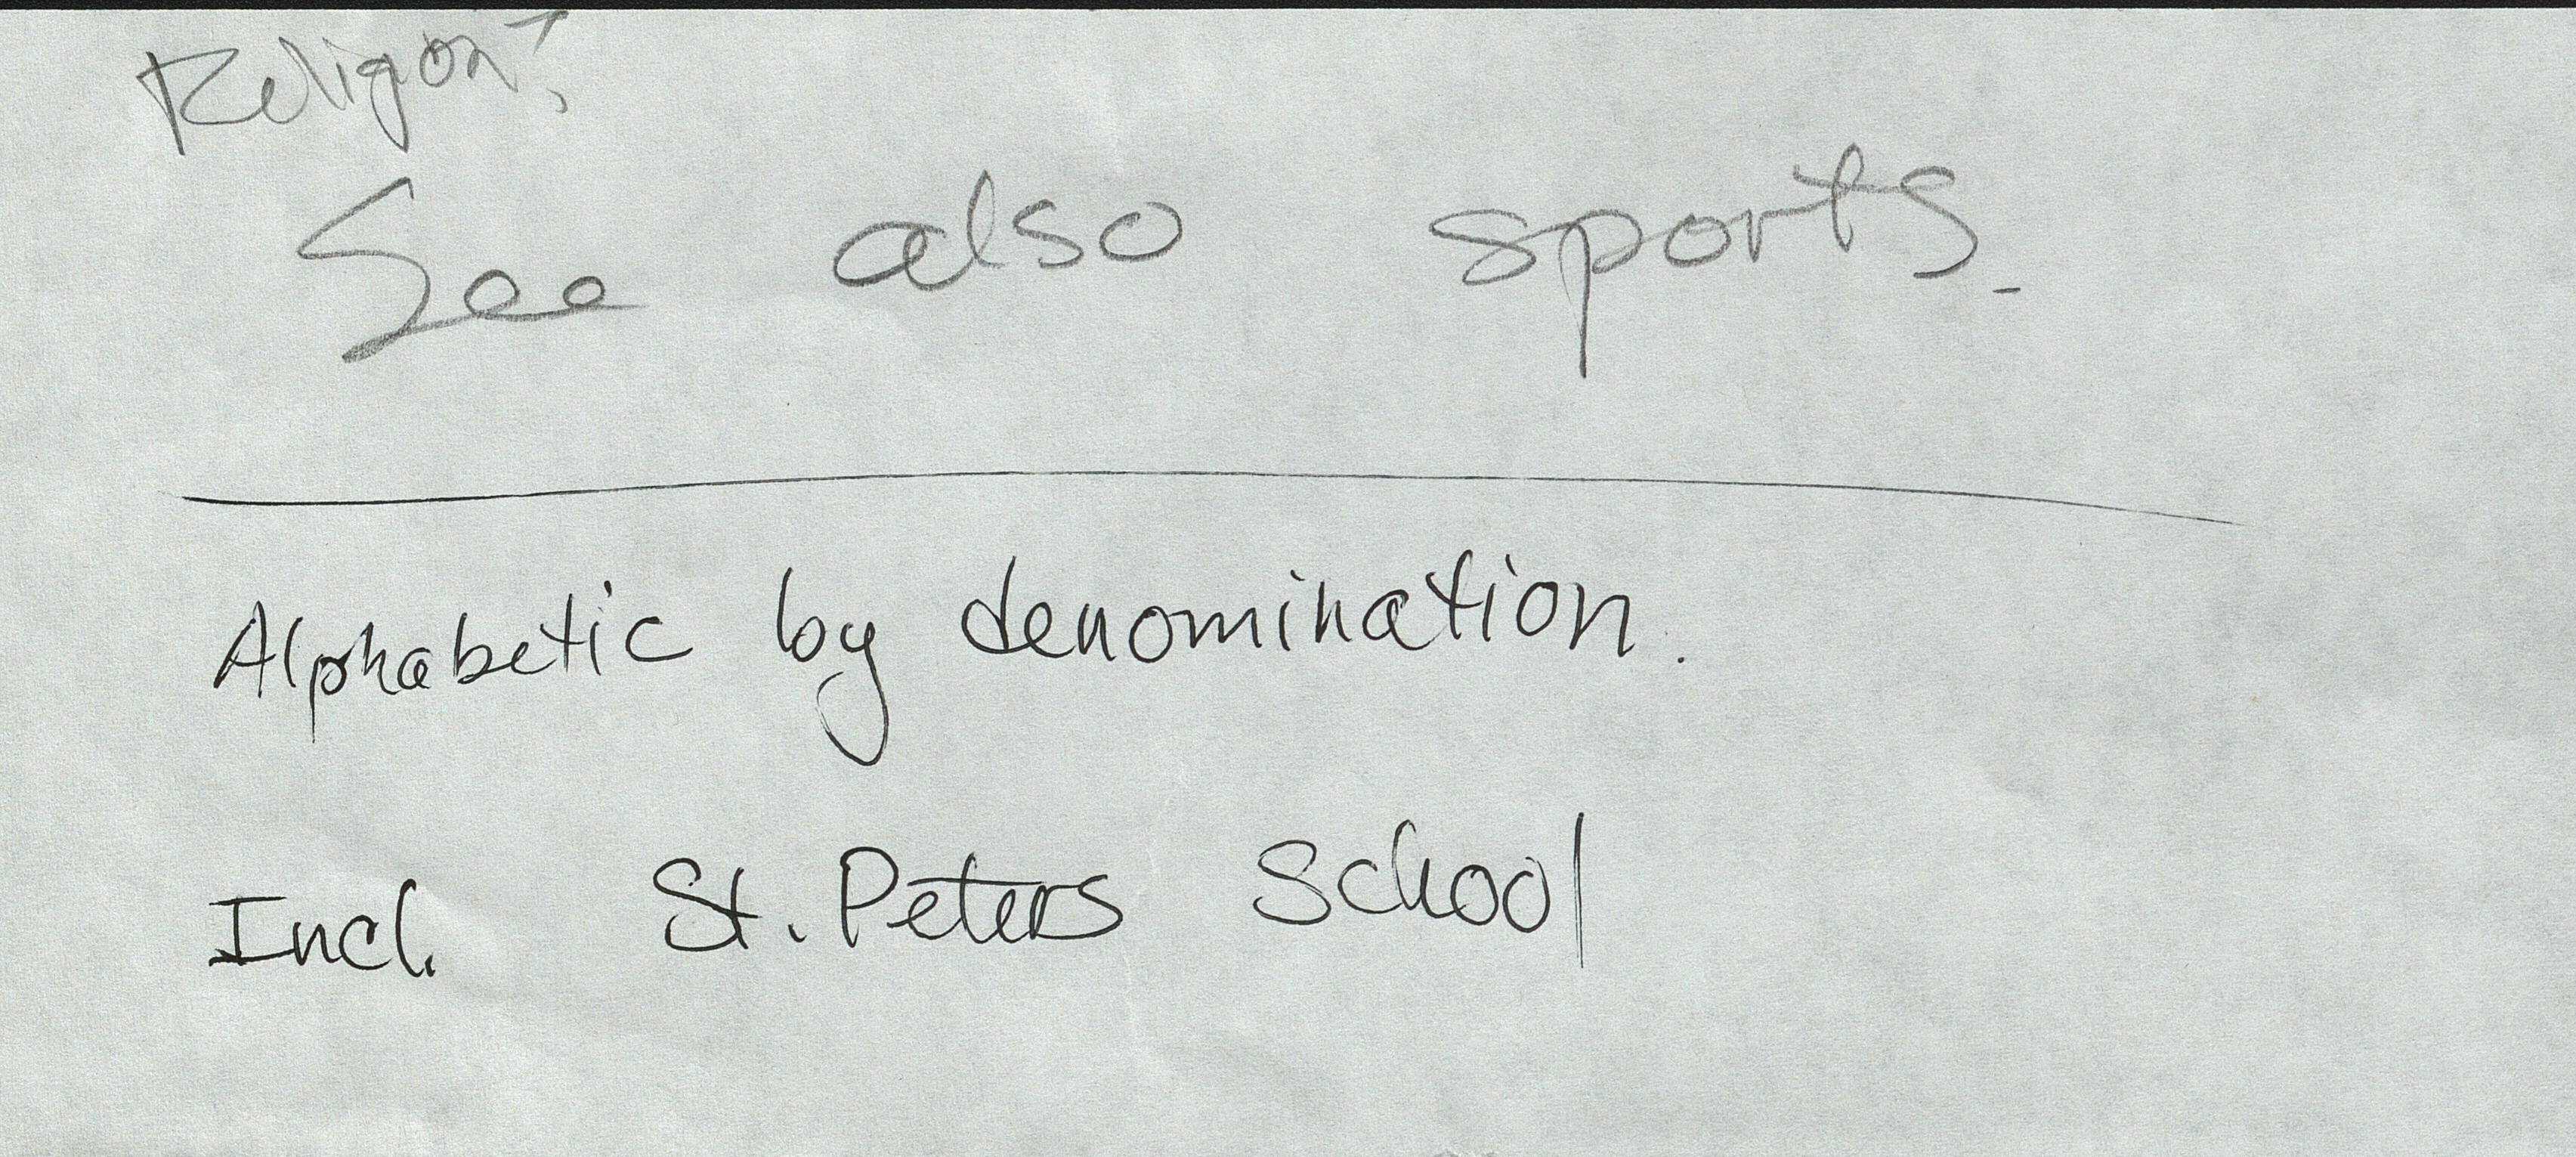 Religon?
See also sports.
Alphabetic by denomination.
Incl. St. Peters School